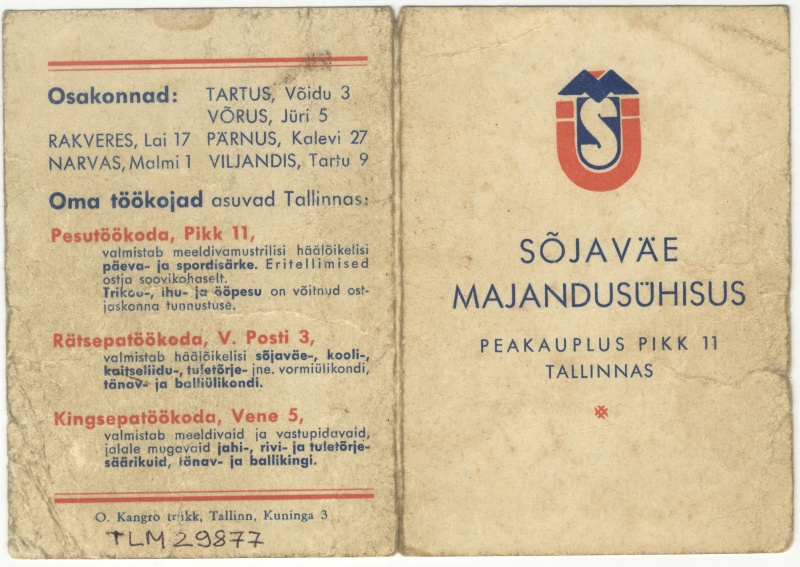 Osakonnad: TARTUS, Võidu 3
VÕRUS, Jüri 5
RAKVERES, Lai 17 PÄRNUS, Kalevi 27
NARVAS, Malmi 1 VILJANDIS, Tartu 9
Oma töökojad asuvad Tallinnas:
Pesutöökoda, Pikk 11,
valmistab meeldivamustrilisi häälõikelisi
päeva- ja spordisärke. Eritellimised
ostja soovikohaselt.
Trikoo-, ihu- ja ööpesu on võitnud ost-
jaskonna tunnustuse.
Rätsepatöökoda, V. Posti 3,
valmistab häälõikelisi sõjaväe-, kooli-,
kaitseliidu-, tuletõrje- jne. vormiülikondi,
tänav- ja balliülikondi.
Kingsepatöökoda, Vene 5,
valmistab meeldivaid ja vastupidavaid,
jalale mugavaid jahi-, rivi- ja tuletõrje-
säärikuid, tänav- ja ballikingi.
O. Kangro trükk, Tallinn, Kuninga 3
TLM 29877
S
SÕJAVÄE
MAJANDUSÜHISUS
PEAKAUPLUS PIKK 11
TALLINNAS